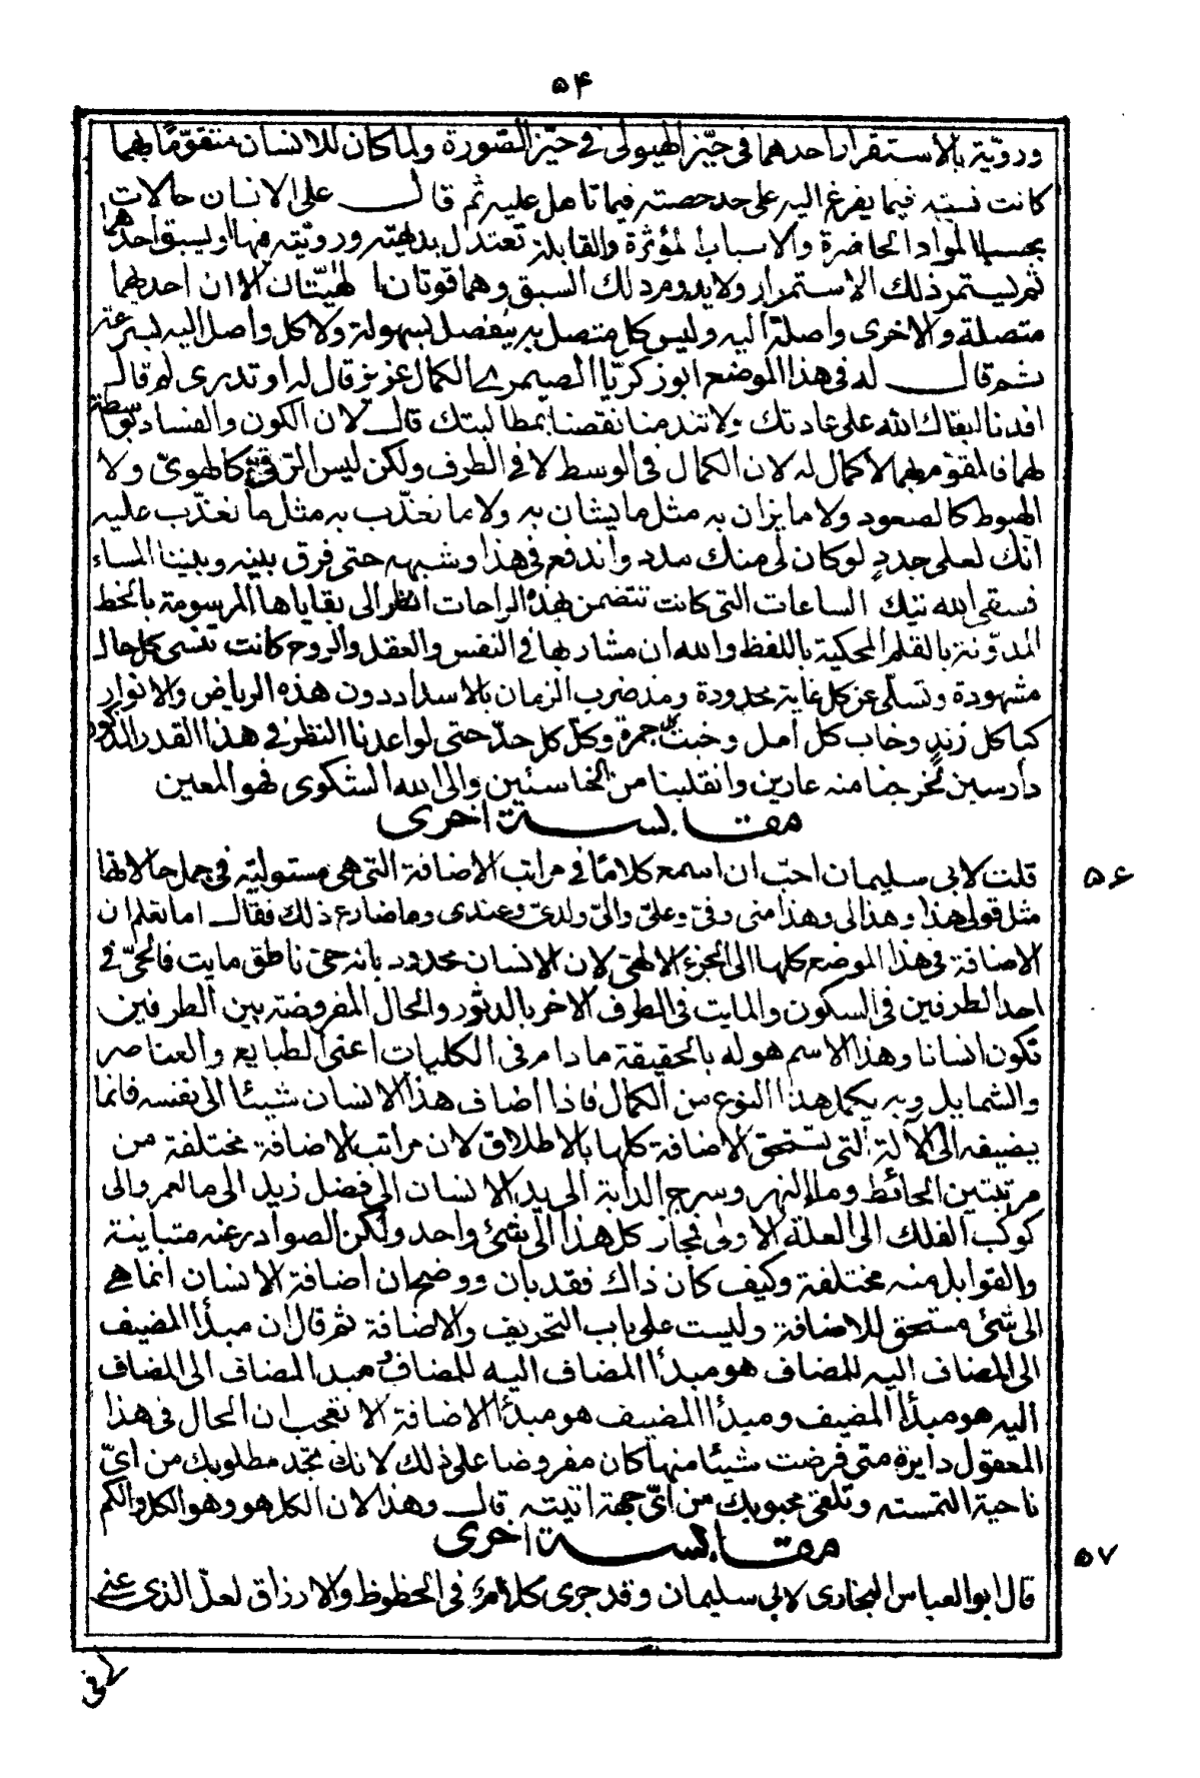 ٥٤
ورويّة بالاستقرار احدهما فى حيّز الهيولى فى حيّز الصّورة ولما كان للانسان متقوّما بهما
كانت نسبته فيما يفرغ اليه على حد حصته فيما تاهل عليه ثم قال على الانسان حالات
بحسب المواد الحاضرة والاسباب المؤثرة والقابلة تعتدل بديهته ورويته فيها او يسبق احدهما
ثم ليستمر ذلك الاستمرار ولا يدوم ذلك السبق وهما قوتان الهيّتان الا ان احدهما
متصلة والاخرى واصلة اليه وليس كل متصل به ينفصل بسهولة ولا كل واصل اليه بسرعته
ثم قال له فى هذا الموضع ابو زكريّا الصيمرى الكمال عزيز قال له او تدرى لم قال
افدنا ابقاك الله على عادتك ولا تندمنا نقصنا بمطالبتك قال لان الكون والفساد بتوسطة
لهما فالمقوم بهما لا كمال له لان الكمال فى الوسط لا فى الطرف ولكن ليس الترقىّ كالهوىّ ولا
الهبوط كالصعود ولا ما يزان به مثل ما يشان به ولا ما نعذّب به مثل ما نعذّب عليه
انك لعلى جدد لو كان لى منك مدد واندفع فى هذا وشبهه حتى فرق بينه وبيننا المساء
فسقى الله تيك الساعات التى كانت تتضمن هذه الراحات انظر الى بقاياها المرسومة بالخط
المدوّنة بالقلم المحكية باللفظ والله ان مشاربها فى النفس والعقل والروح كانت تنسى كل حال
مشهودة وتسلّى عن كل غاية محدودة ومنذ ضرب الزمان بالاسداد دون هذه الرياض والانوار
كبا كل زند وخاب كل امل وخبت كل جمرة وكلّ كل حدّ حتى لو اعدنا النظر فى هذا القدر المذكور
دارسين لخرجنا منه عارين وانقلبنا من الخاسئين والى الله الشكوى فهو المعين
مقابسة اخرى
٥٦
قلت لابى سليمان احبّ ان اسمع كلاما فى مراتب الاضافة التى هى مستولية فى جمل حالاتها
مثل قولى هذا وهذا لى وهذا منى وفىّ وعلىّ والىّ ولدىّ وعندى وما ضارع ذلك فقال اما تعلم ان
الاضافة فى هذا الموضع كلها الى الجزء الالهى لان الانسان محدود بانه حى ناطق مايت فالحىّ فى
احد الطرفين فى السكون والمايت فى الطرف الاخر بالدثور والحال المفروضة بين الطرفين
تكون انسانا وهذا الاسم هو له بالحقيقة ما دام فى الكليات اعنى الطبايع والعناصر
والشمايل وبه يكمل هذا النوع من الكمال فاذا اضاف هذا الانسان شيئا الى نفسه فانما
يضيفه الى الآلة التى تستحق الاضافة كلها بالاطلاق لان مراتب الاضافة مختلفة من
مرتبتين الحائط وماء النهر وسرج الدابة الى يد الانسان الى فضل زيد الى مال عمر والى
كوكب الفلك الى العلة الاولى فمجاز كل هذا الى شئ واحد ولكن الصوادر عنه متباينة
والقوابل منه مختلفة وكيف كان ذاك فقد بان ووضح ان اضافة الانسان انما هى
الى شئ مستحق للاضافة وليست على باب التحريف والاضافة ثم قال ان مبدأ المضيف
الى المضاف اليه للمضاف هو مبدأ المضاف اليه للمضاف ومبدا المضاف الى المضاف
اليه هو مبدأ المضيف ومبدأ المضيف هو مبدأ الاضافة الا تعجب ان الحال فى هذا
المعقول دايرة متى فرضت شيئا منها كان مفروضا على ذلك لانك تجد مطلوبك من اىّ
ناحية التمسته وتلقى محبوبك من اىّ جهة اتيته قال وهذا لان الكل هو وهو الكل والكم
مقابسة اخرى
٥٧
قال ابو العباس البخارى لابى سليمان وقد جرى كلام فى الحظوظ والارزاق لعلّ الذى عنى